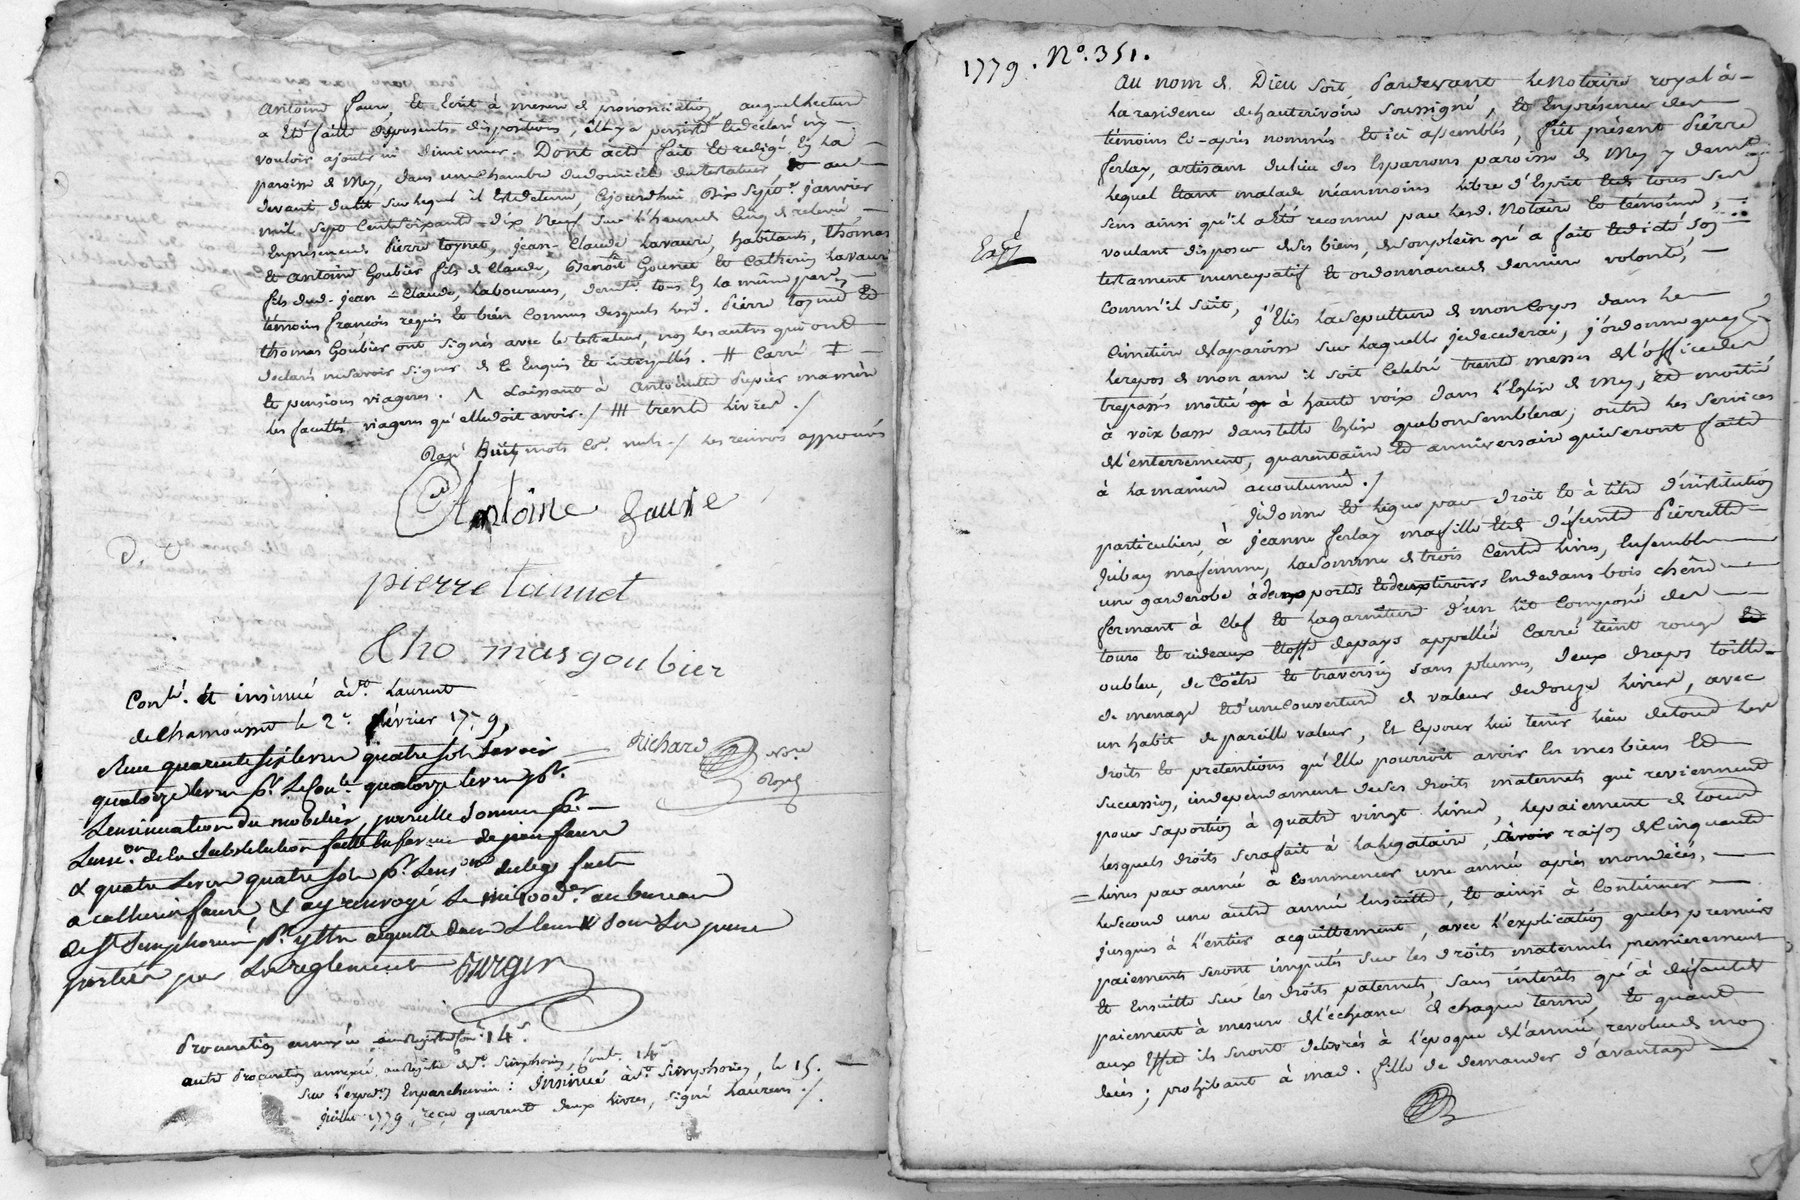 antoine faure, et Ecrit à mesure de prononciation, auquel lecture
a été faitte des presents dispositions, il y a persisté et declaré n'y
vouloir ajouter ni diminuer. Dont acte fait et redigé En la
paroisse de Mey, dans une chambre du domicile du testateur au
devant du lit sur lequel il est detenu, cejourdhui dix sept janvier
mil sept cents soixante dix neuf sur l'heure de cinq de relevée,
En presence de Pierre toynet, jean-Claude Lavaure, habitants, thomas
et antoine Goubier fils de Claude, Benoît Gounet et Catherin Lavaure
fils dud. jean-Claude, laboureurs, demts. tous En la même parr.
témoins françois requis et bien connus desquels led. Pierre toynet et
thomas Goubier ont signés avec le testateur, non les autres qui ont
declaré ne savoir signer de ce Enquis et interpellés. # Carré ‡
et pensions viageres. Λ Laissant à antoinette Dupier ma mère
les facultés viageres qu'elle doit avoir ./ ## trente livres ./
Rayé huit mots Co. nuls ./ les renvois approuvés
Antoine faure
D.
pierre toinnet
tho mas goubier
Conlé. et insinué à St. Laurent
de Chamousset le 2e. février 1779,
Reçu quarente six livres quatre sols savoir
quatorze livres pr. le Conle. quatorze livres pr.
L'insinuation du mobilier, pareille somme pr.
Linson. de la substitution faitte en faveur de jean faure
& quatre livres quatre sols pr. Lins.on du legs fait
a catherin faure, & ay renvoyé au bureau
de St. Simphorien pr. y être acquitté dans
portées par les reglements Surgin
Richard Nore. Royal
Procuration annexée au Registre Con. 14s.
autre Procuration annexée, au Registre de St. Simphorien, Cont. 14s.
sur l'expedon. En parchemin : Insinué à St. Simphorien, le 15.
juillet 1779, reçu quarente deux livres, signé Laurens ./
1779. No. 351.
Au nom de Dieu soit, Pardevant le Notaire royal à
la residence de hauterivoire soussigné, et En presence des
témoins Ci-après nommés et ici assemblés, fût présent Pierre
ferlay, artisan du lieu des Esparrons paroisse de Mey y demt.
lequel Etant malade néanmoins libre d'Esprit et de tous ses
sens ainsi qu'il a été reconnu par led. Notaire et temoins,
Expé
voulant disposer de ses biens, de son plein gré a fait et dicté son
testament nuncupatif et ordonnance de derniere volonté,
comm'il suit,
j'Elis la sepulture de mon Corps dans le
Cimetiere de la paroisse sur laquelle je decederai, j'ordonne que pr
le repos de mon ame il soit Celebré trente messes de l'office des
trepassés moitié à haute voix dans l'Eglise de Mey, et moitié
à voix basse dans telle Eglise que bon semblera, outre les services
de l'enterrement, quarentaine et anniversaire qui seront faits
à la maniere accoutumée ./
je donne et legue par droit et à titre d'institution
particuliere à Jeanne ferlay ma fille et de défunte Pierrette
Jubay ma femme, la somme de trois Cents livres, Ensemble
une garderobe à deux portes et deux tiroirs En dedans bois chêne
fermant à Clef et la garniture d'un lit Composé des
tours et rideaux Etoffe de pays appellée Carré teint rouge
ou bleu, de Coëtre et traversin sans plumes, deux draps toille
de menage et d'une couverture de valeur de douze livres, avec
un habit de pareille valeur, Et Ce pour lui tenir lieu de tous les
droits et pretentions qu'Elle pourroit avoir En mes biens et
succession, independament de ses droits maternels qui reviennent
pour sa portion à quatre vingt livres, le paiement de tous
lesquels droits sera fait à la legataire, à raison de Cinquante
livres par année à commencer une année après mon decés,
le second une autre année Ensuitte, et ainsi à Continuer
jusques à l'entier acquittement, avec l'explication que les premiers
paiements seront imputés sur les droits maternels premierement
Et Ensuitte sur les droits paternels, sans interêts qu'à défaut de
paiement à mesure de l'echeance de chaque terme, Et quant
aux Effets ils seront delivrés à l'epoque de l'année revolue de mon
decès ; prohibant à mad. fille de demander d'avantage